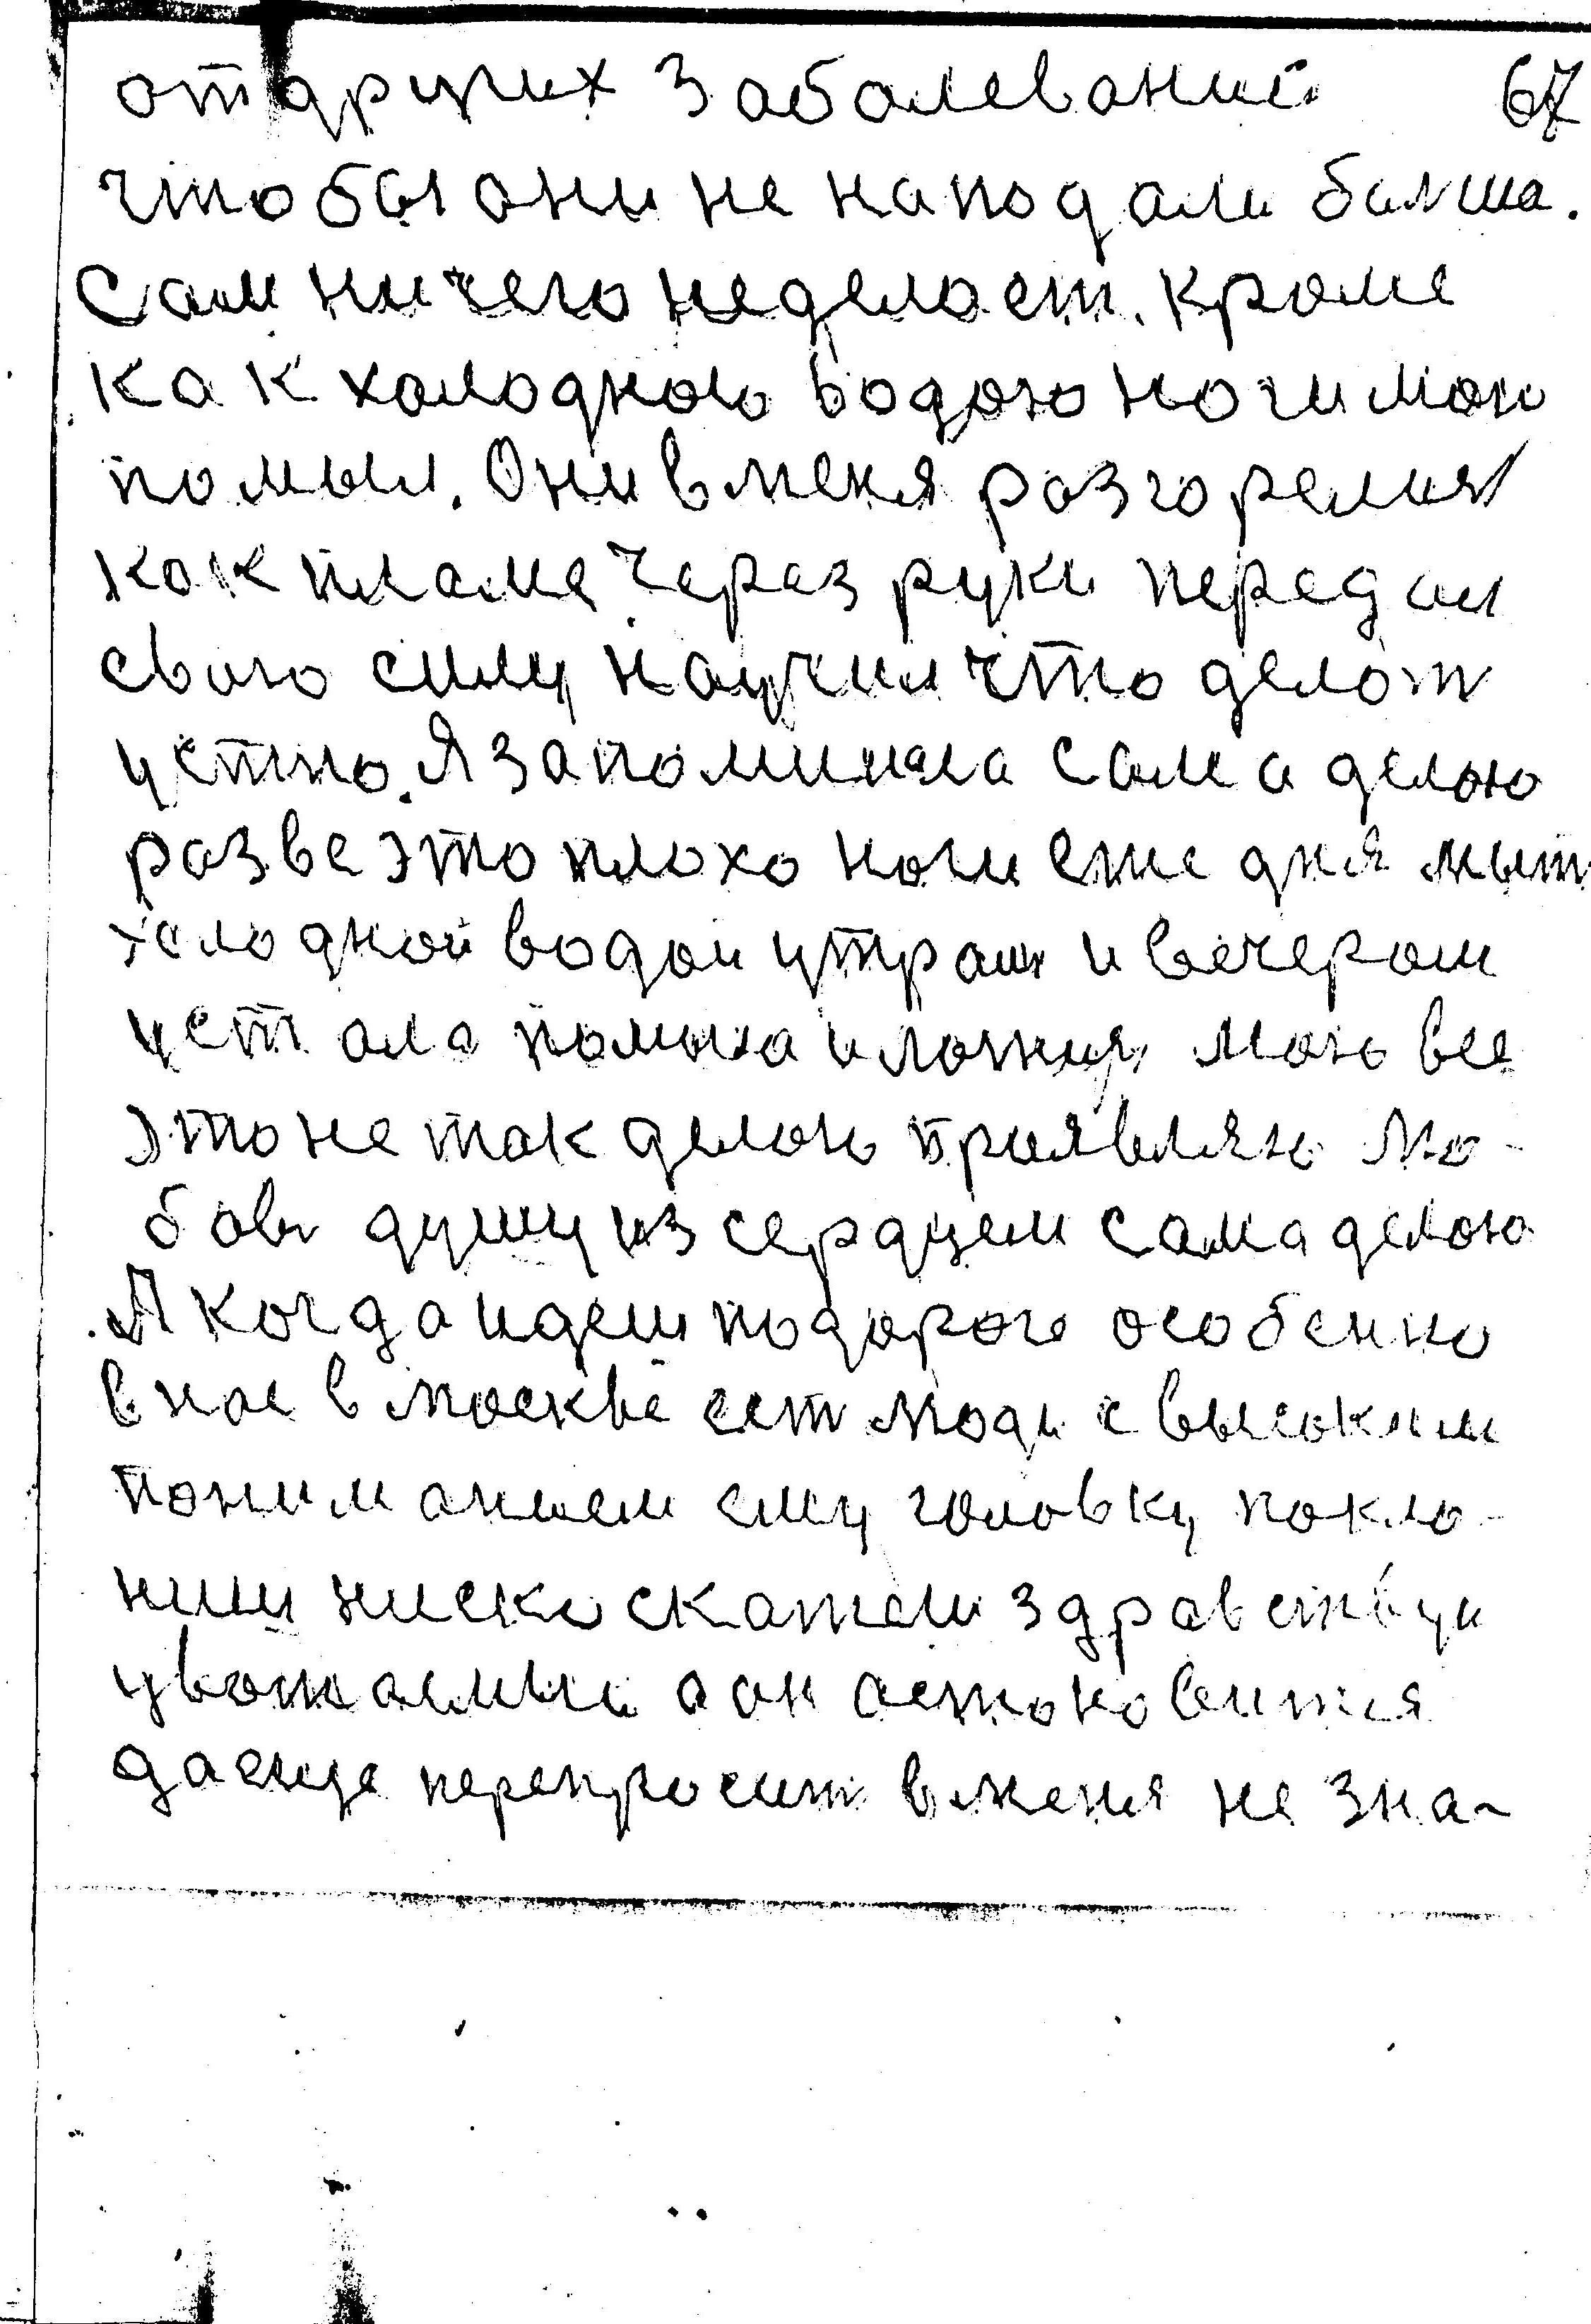 от других заболеваний 67
чтобы они не наподали болша.
Сам ничего неделает. кроме
как холодною водою ноги мои
помыл. Они вменя розгорелися
как пламе, через руки передал
свою силу научил что делот
устно. Я запоминала сама делою
розве это плохо ноги еже дня мыт
холодной водой утром и вечером
устала помыла и ложуся мою все
это не так делою проявляю лю-
бовь душу из сердцем сама делою
А когда идеш по дороге особенно
внас в москве ест люди с высоким
пониманием ему головку покло-
ниш ниско скажеш здравствуй
уважаемый а он остоновится
да еще перепросит вменя не зна-